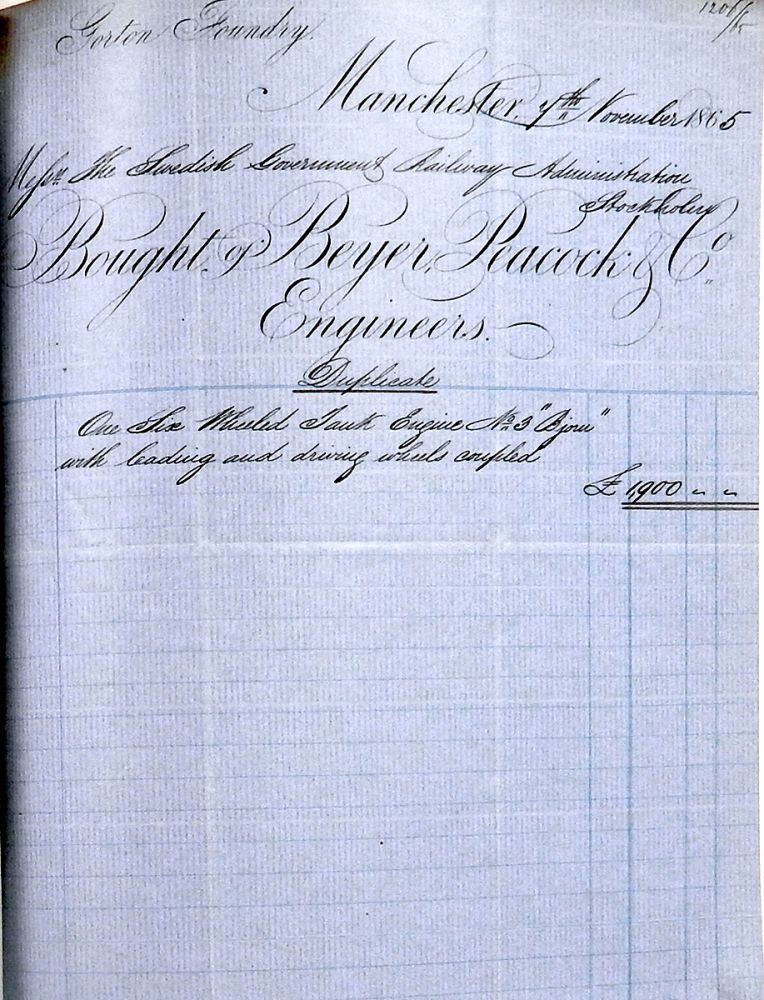 1206/65
Gorton Foundry.
Manchester, 7th November 1865
Messrs. The Swedish Government Railway Administration
Stockholm
Bought of Beyer, Peacock & Co.
Engineers.
Duplicate
One Six Wheeled Tank Engine No. 3 "Bjorn"
with leading and driving wheels coupled
£ 1,900 " "